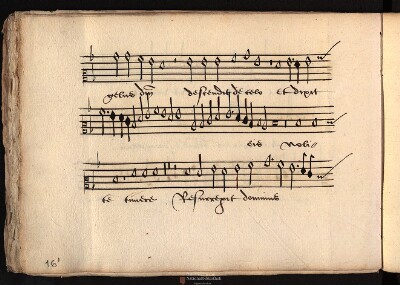 gelus dni descendit de celo et dixit
eis Noli
te timere Resurrexit dominus
16'